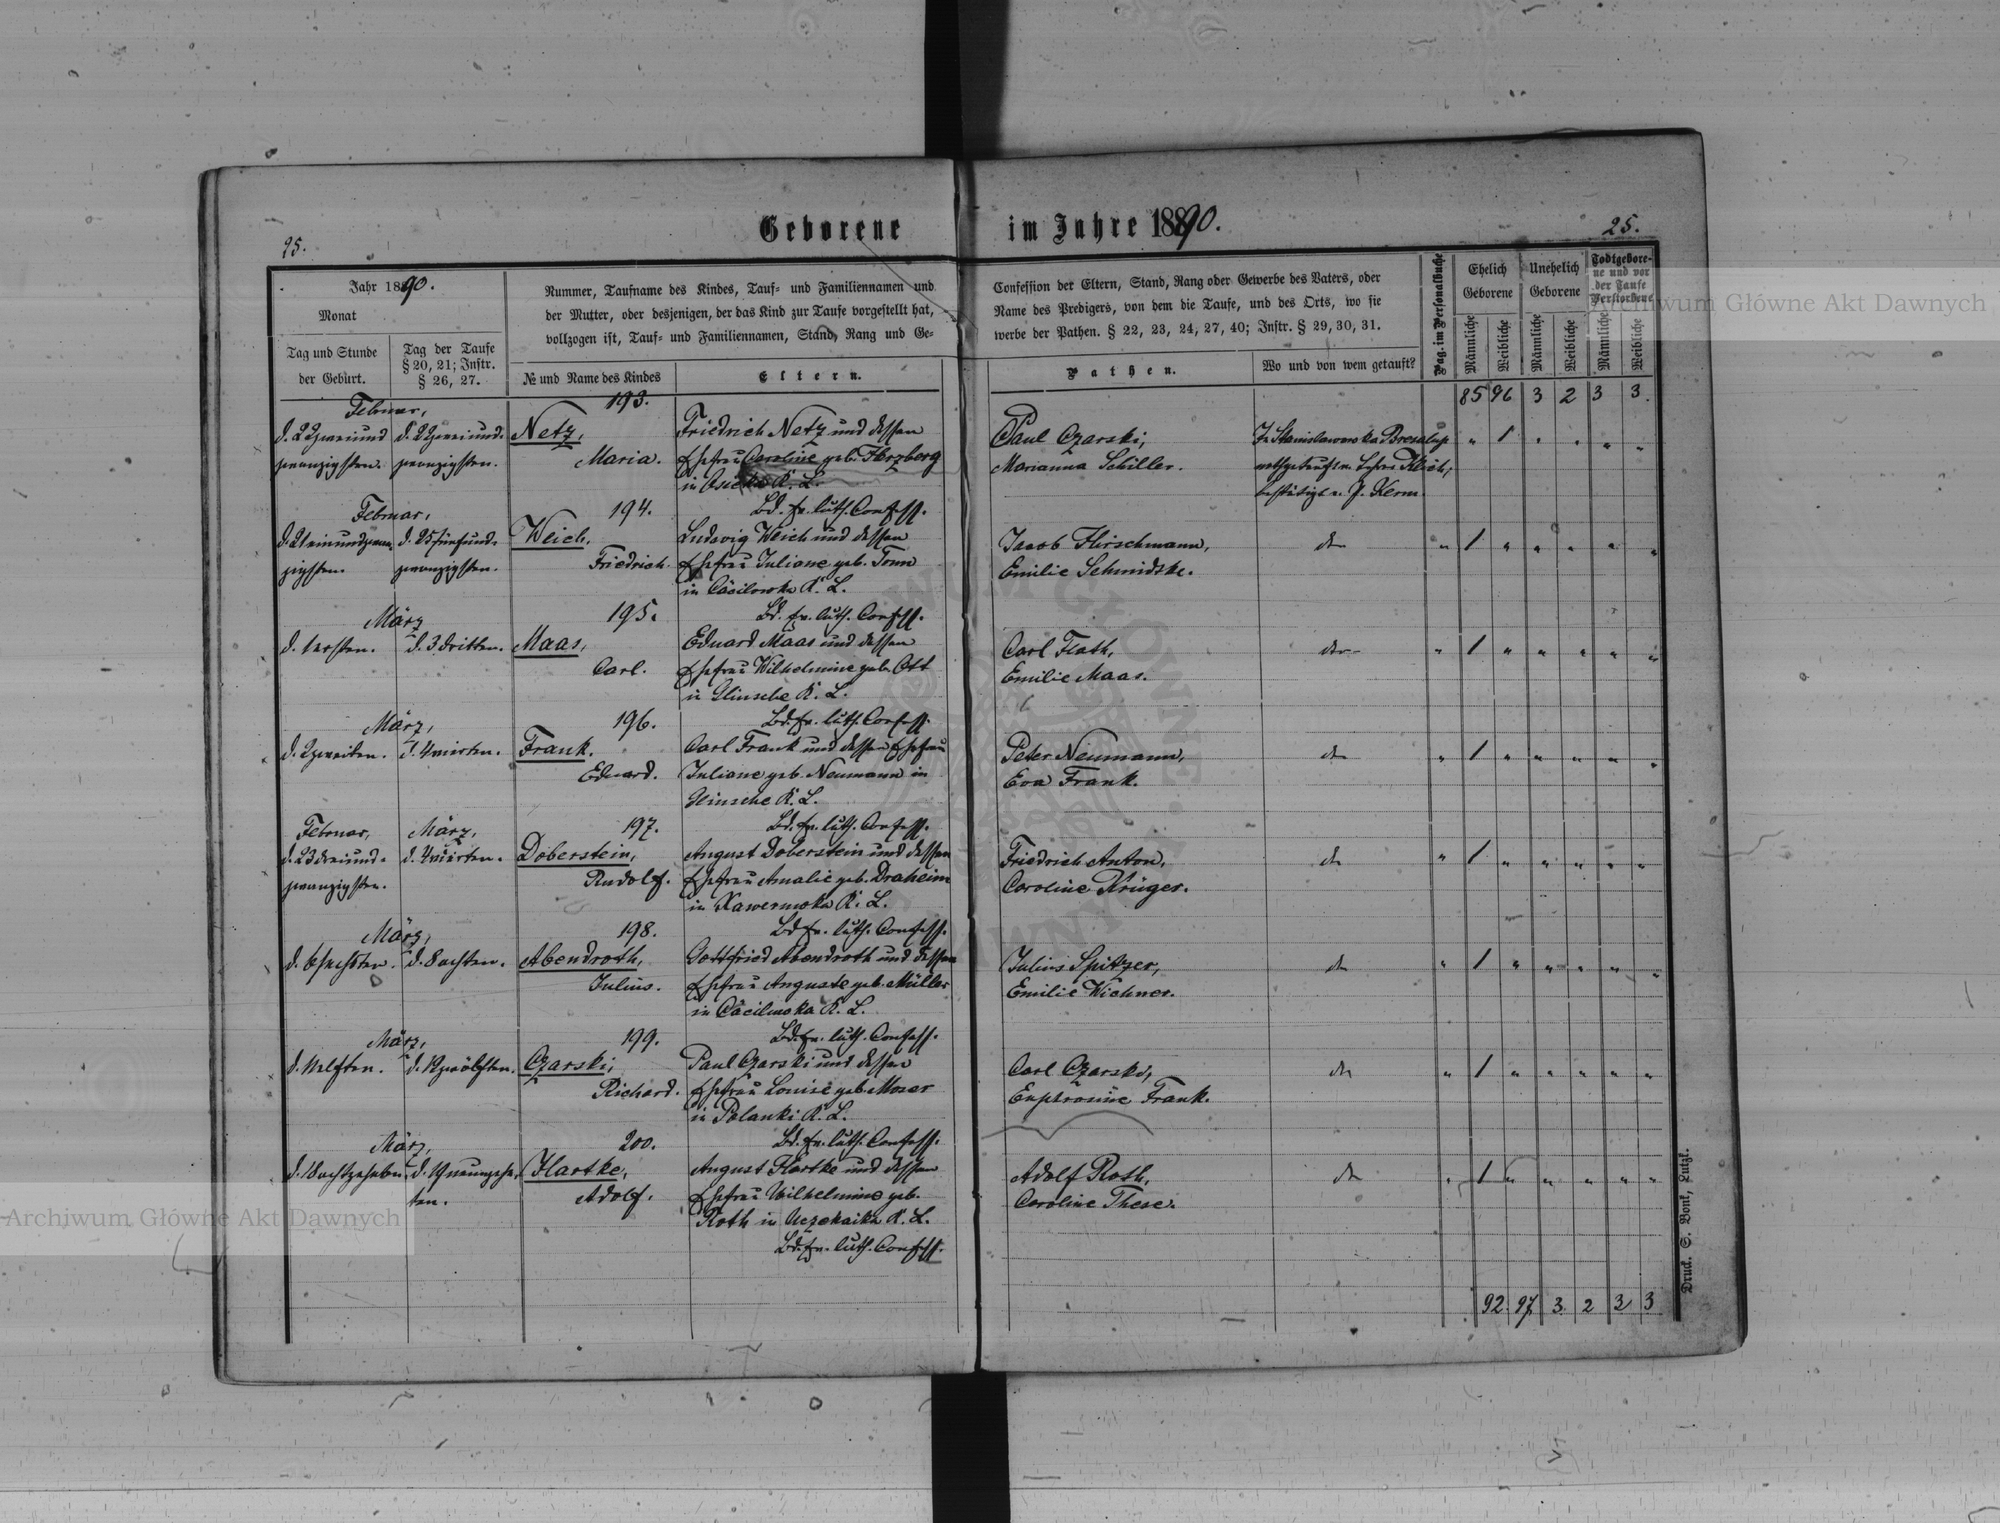 Geborene im Jahre 1890.
25.
25.
Jahr 1890.
Monat
Tag und Stunde
der Geburt.
Tag der Taufe
§ 20, 21; Instr.
§ 26, 27.
Nummer, Taufname des Kindes, Tauf- und Familiennamen und
der Mutter, oder desjenigen, der das Kind zur Taufe vorgestellt hat,
vollzogen ist, Tauf- und Familiennamen, Stand, Rang und Ge-
№ und Name des Kindes
Eltern.
Confession der Eltern, Stand, Rang oder Gewerbe des Vaters, oder
Name des Predigers, von dem die Taufe, und des Orts, wo sie
werbe der Pathen. § 22, 23, 24, 27, 40; Instr. § 29, 30, 31.
Pathen.
Wo und von wem getauft?
Pag. im Personalbuche
Ehelich
Geborene
Unehelich
Geborene
Todtgebore-
ne und vor
der Taufe
Verstorbene
Männliche
Weibliche
Männliche
Weibliche
Männliche
Weibliche
85 96 3 2 3 3.
Februar,
193.
d. 22 zweiund
zwanzigsten.
d. 22 zweiund-
zwanzigsten.
Netz,
Maria.
Friedrich Netz und dessen
Ehefrau Caroline geb. Herzberg
in K. L.
Bd. ev. luth. Confess.
Paul Czarski,
Marianna Schiller.
In Stanislawowka
bestätigt v. P. Kerm.
" 1 " " " "
Februar,
194.
d. 21 einundzwan-
zigsten.
d. 25 fünfund-
zwanzigsten.
Weich,
Friedrich.
Ludwig Weich und dessen
Ehefrau Juliane geb. Tonn
in K. L.
Bd. ev. luth. Confess.
Jacob Hirschmann,
Emilie Schmidtke.
" 1 " " " " "
März
195.
d. 1 ersten.
d. 3 dritten.
Maas,
Carl.
Eduard Maas und dessen
Ehefrau Wilhelmine geb. Ott
in Glinsche K. L.
Bd. ev. luth. Confess.
Carl Flath,
Emilie Maas.
" 1 " " " " "
März,
196.
d. 2 zweiten.
d. 4 vierten.
Frank.
Eduard.
Carl Frank und dessen Ehefrau
Juliane geb. Neumann in
Glinsche K. L.
Bd. ev. luth. Confess.
Peter Neumann,
Eva Frank.
" 1 " " " " "
Februar,
März,
197.
d. 23 dreiund-
zwanzigsten.
d. 4 vierten.
Doberstein,
Rudolf.
August Doberstein und dessen
Ehefrau Amalie geb. Draheim
in K. L.
Bd. ev. luth. Confess.
Friedrich Anton,
Caroline Krüger.
" 1 " " " " "
März,
198.
d. 6 sechsten.
d. 8 achten.
Abendroth,
Julius.
Gottfried Abendroth und dessen
Ehefrau Auguste geb. Müller
in K. L.
Bd. ev. luth. Confess.
Julius Spitzer,
Emilie Wichner.
" 1 " " " " "
März,
199.
d. 11 elften.
d. 12 zwölften.
Czarski,
Richard.
Paul Czarski und dessen
Ehefrau Louise geb. Moser
in Polanki K. L.
Bd. ev. luth. Confess.
Carl Czarski,
Euphrosine Frank.
" 1 " " " " "
März,
200.
d. 18 achtzehnten
d. 19 neunzehn-
ten.
Hartke,
Adolf.
August Hartke und dessen
Ehefrau Wilhelmine geb.
Roth in K. L.
Bd. ev. luth. Confess.
Adolf Roth,
Caroline These.
" 1 " " " " "
92 97 3 2 3 3
Druck. S. Bont, Lutzk.
Archiwum Główne Akt Dawnych
Archiwum Główne Akt Dawnych